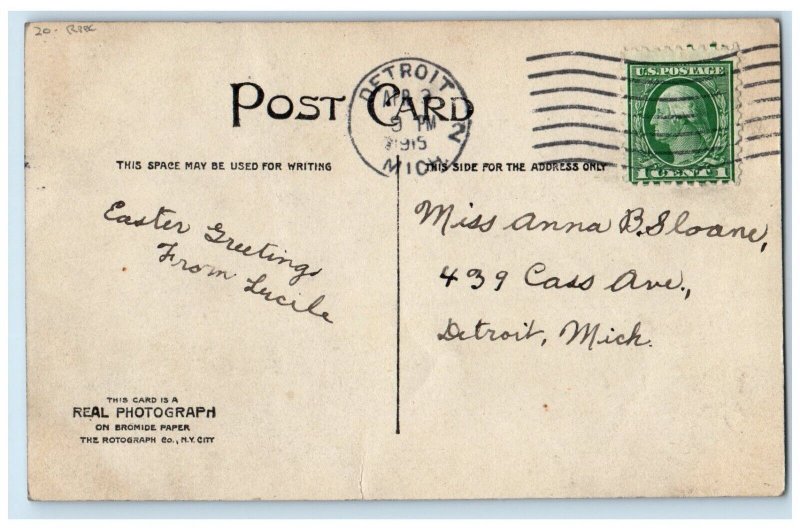 20- RPPC
POST CARD
DETROIT
APR 3
9 PM
1915
MICH
2
U.S. POSTAGE
1 CENT 1
THIS SPACE MAY BE USED FOR WRITING
THIS SIDE FOR THE ADDRESS ONLY
Easter Greetings
From Lucile
Miss Anna B. Sloane,
439 Cass Ave.,
Detroit, Mich.
THIS CARD IS A
REAL PHOTOGRAPH
ON BROMIDE PAPER
THE ROTOGRAPH CO., N.Y. CITY